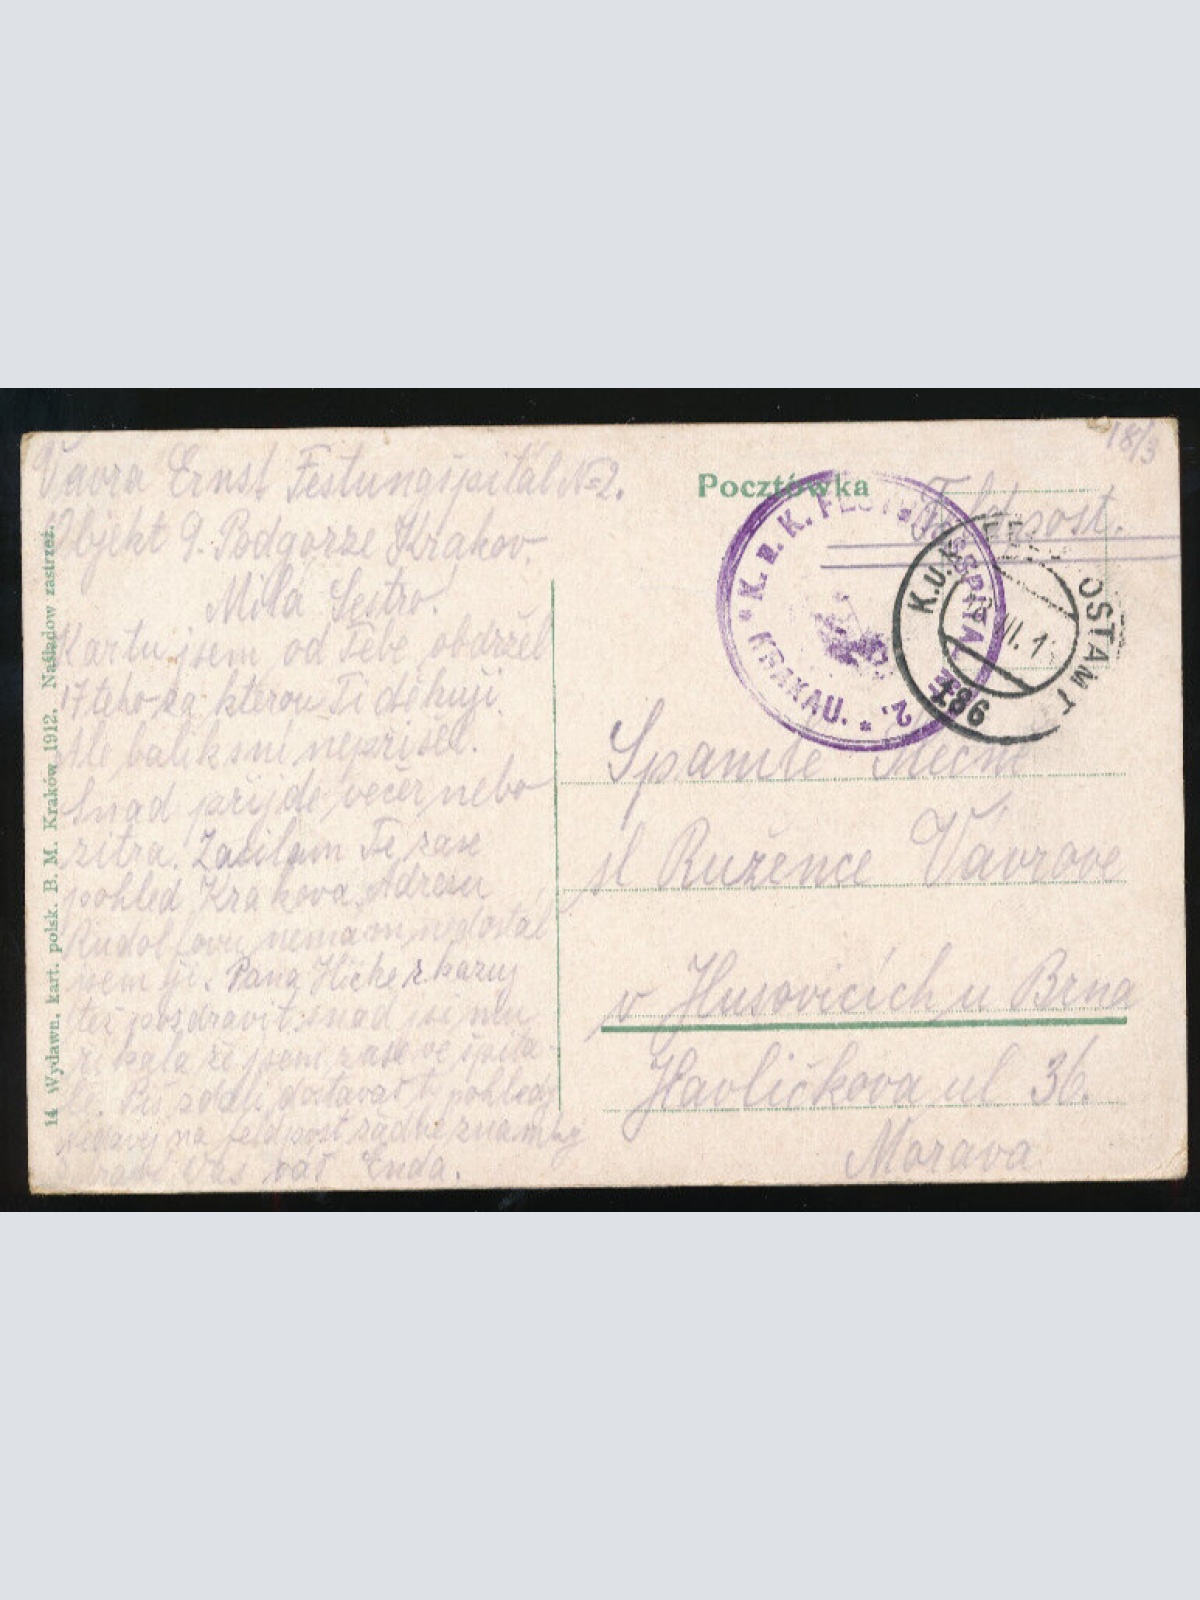 18/3
Vavra Ernst Festungspitál No 2.
Objekt 9. Podgorze Krakov.
Milá Sestro!
Kartu jsem od Tebe obdržel
17 toho za kterou Ti děkuji.
Ale balík mi nepřišel.
Snad přijde večer nebo
zítra. Zasílám Ti zase
pohled Krakova. Adresu
Rudolfovu nemám nedostal
jsem ji. Pana Hickera
též pozdravit snad jsi mu
říkala že jsem zase ve špitá-
le. pohledy
na feldpost žádné známky
Zdraví Vás váš Enda.
14 Wydawn. kart. polsk. B. M. Kraków, 1912. Naśladow zastrzeż.
Pocztówka
Feldpost.
K. u. K. FESTUNGSSPITAL № 2. * KRAKAU. *
K.u.K. FELDPOSTAMT
VII. 1
186
Spanilé Slečně
sl Ružence Vávrove
v Husovicích u Brna
Havličkova ul 36.
Morava